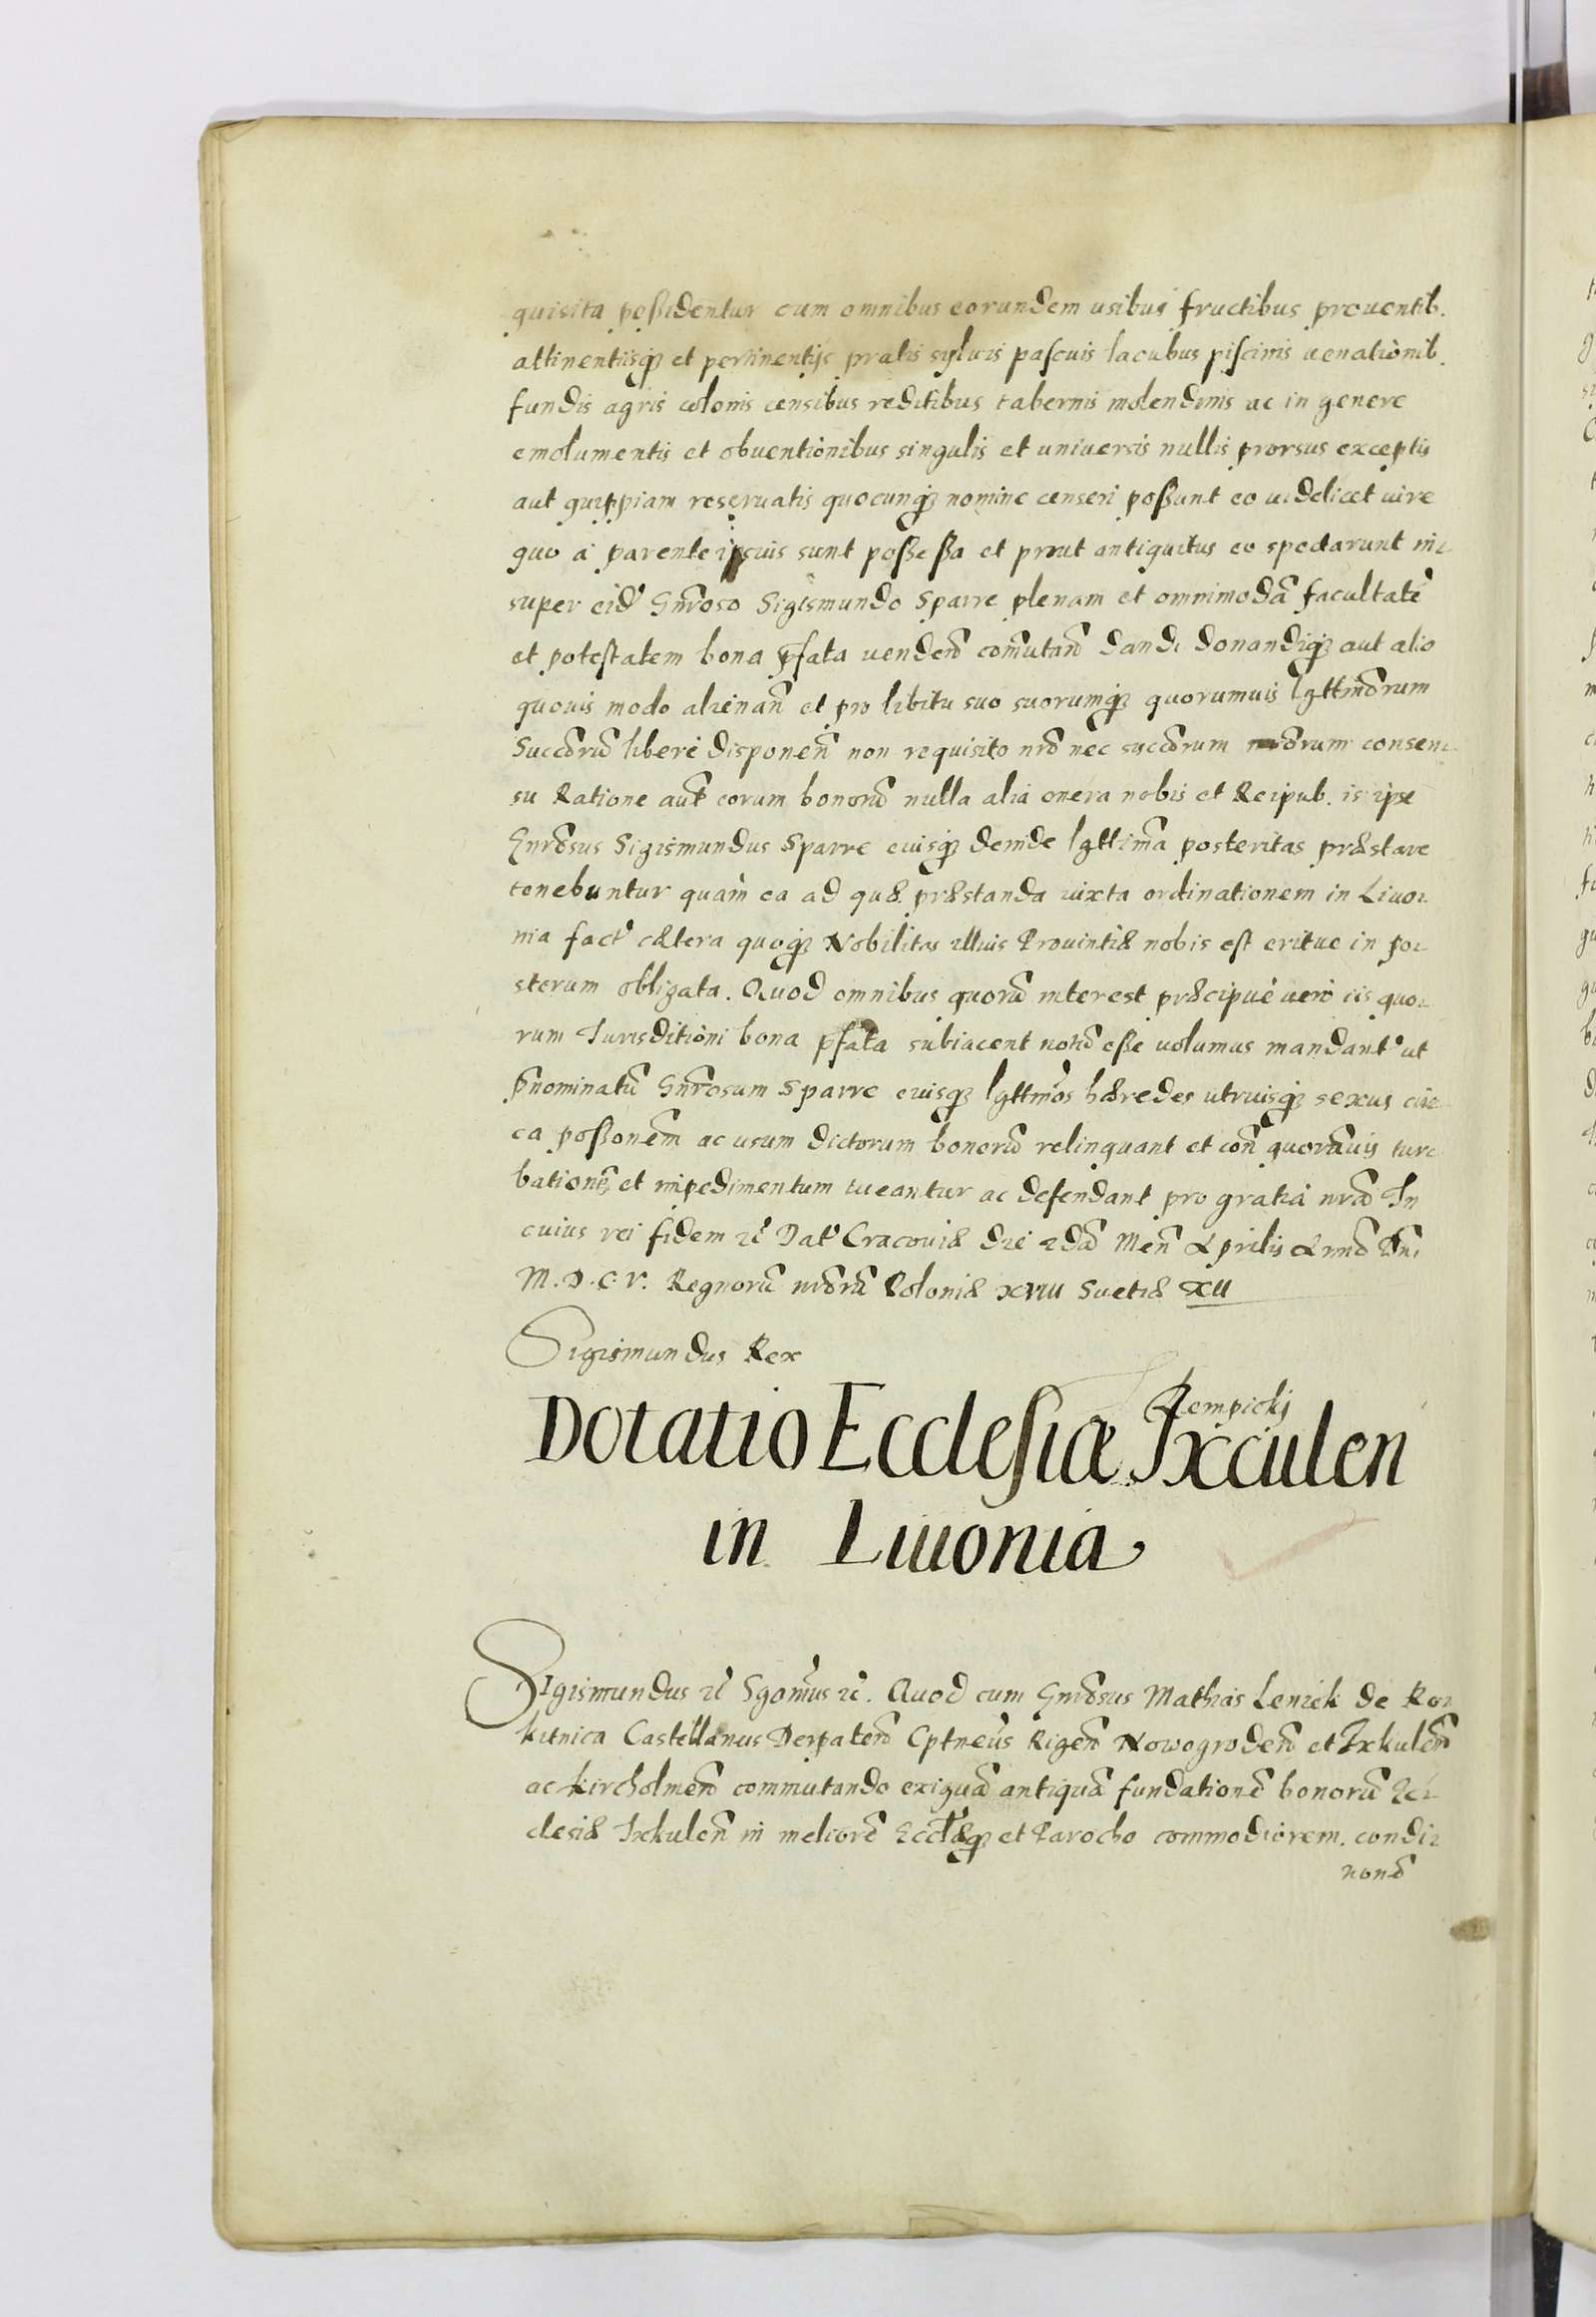 quisita possidentur cum omnibus eorundem usibus fructibus prouentib.
attinentiisq3 et pertinentijs pratis syluis pascuis lacubus piscinis uenationib.
fundis agris colonis censibus reditibus tabernis molendinis ac in genere
emolumentis et obuentionibus singulis et uniuersis nullis prorsus exceptis
aut quippiam reseruatis quocunq3 nomine censeri possunt eo uidelicet iure
quo a parente ipsius sunt possessa et prout antiquitus eo spectarunt in-
super eid' Gnroso Sigismundo Sparre plenam et omnimodā facultatē
et potestatem bona pfata vendend comutand dandi donandiq3 aut alio
quouis modo alienan et pro libitu suo suorumq3 quorumuis lgttmorum
Succorū liberè disponen non requisito nro nec succorum nrorum consen-
su Ratione aut eorum bonorū nulla alia onera nobis et Reipub. is ipse
Gnrosus Sigismundus Sparre eiusq3 deinde lgttima posteritas præstare
tenebuntur quàm ea ad quæ præstanda iuxta ordinationem in Liuo-
nia fact' cætera quoq3 Nobilitas illius Prouintiæ nobis est eritue in po-
sterum obligata. Quod omnibus quorū interest præcipuè uero iis quo-
rum Jurisditioni bona pfata subiacent notū esse uolumus mandant' ut
pnominatū Gnrosum Sparre eiusq3 lgttmos hæredes utriusq3 sexus cir-
ca possonem ac usum dictorum bonorū relinquant et con quorumuis tur-
bationē et impedimentum tueantur ac defendant pro gratia nra In
cuius rei fidem etc Dat' Cracouiæ die 2da Men Aprilis Anno Dni
M.D.C.V. Regnorū nrorū Poloniæ XVIII Suetiæ XII
Sigismundus Rex
Rempickj
Dotatio Ecclesiæ Ixculen
in Liuonia
Sigismundus etc Sgomus etc. Quod cum Gnrosus Mathias Leniek de Ro-
kitnica Castellanus Derpaten Cptneus Rigen Nowogroden et Ixkulen
ac kircholmen commutando exiguā antiquā fundationē bonorū Ec-
clesiæ Ixkulen in meliorē Ecclæq3 et Parocho commodiorem. condi-
tionē